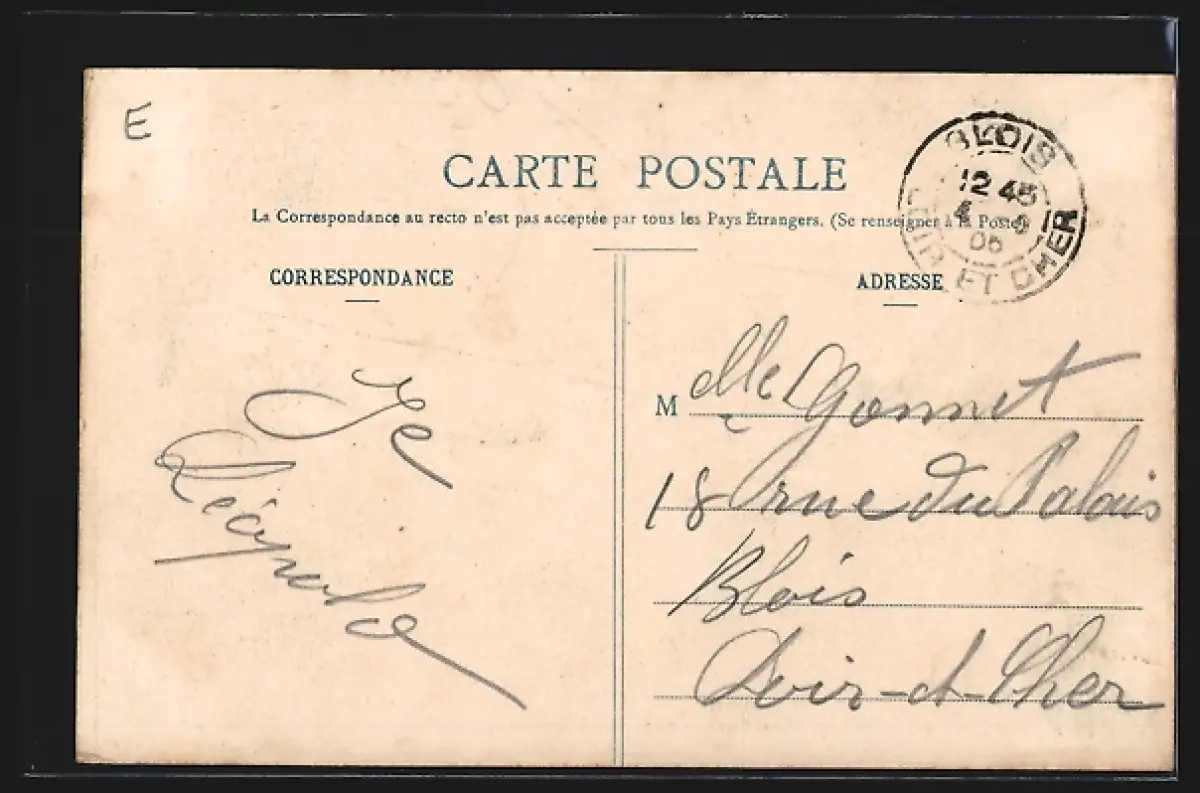 E
CARTE POSTALE
La Correspondance au recto n'est pas acceptée par tous les Pays Étrangers. (Se renseigner à la Poste)
BLOIS
12 45
4
06
LOIR ET CHER
CORRESPONDANCE
Je
Léopold
ADRESSE
M elle Gonnet
18 rue du Palais
Blois
Loir-et-Cher